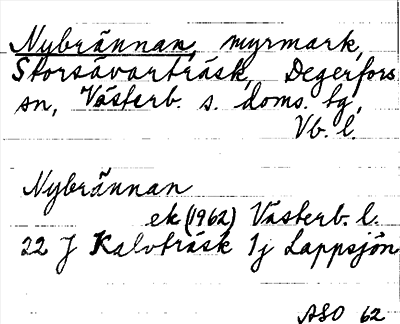 Nybrännan, myrmark,
Storsävarträsk, Degerfors
sn, Västerb. s. doms. tg,
Vb. l.
Nybrännan
ek (1962) Västerb. l.
22 J Kalvträsk 1j Lappsjön
ASO 62